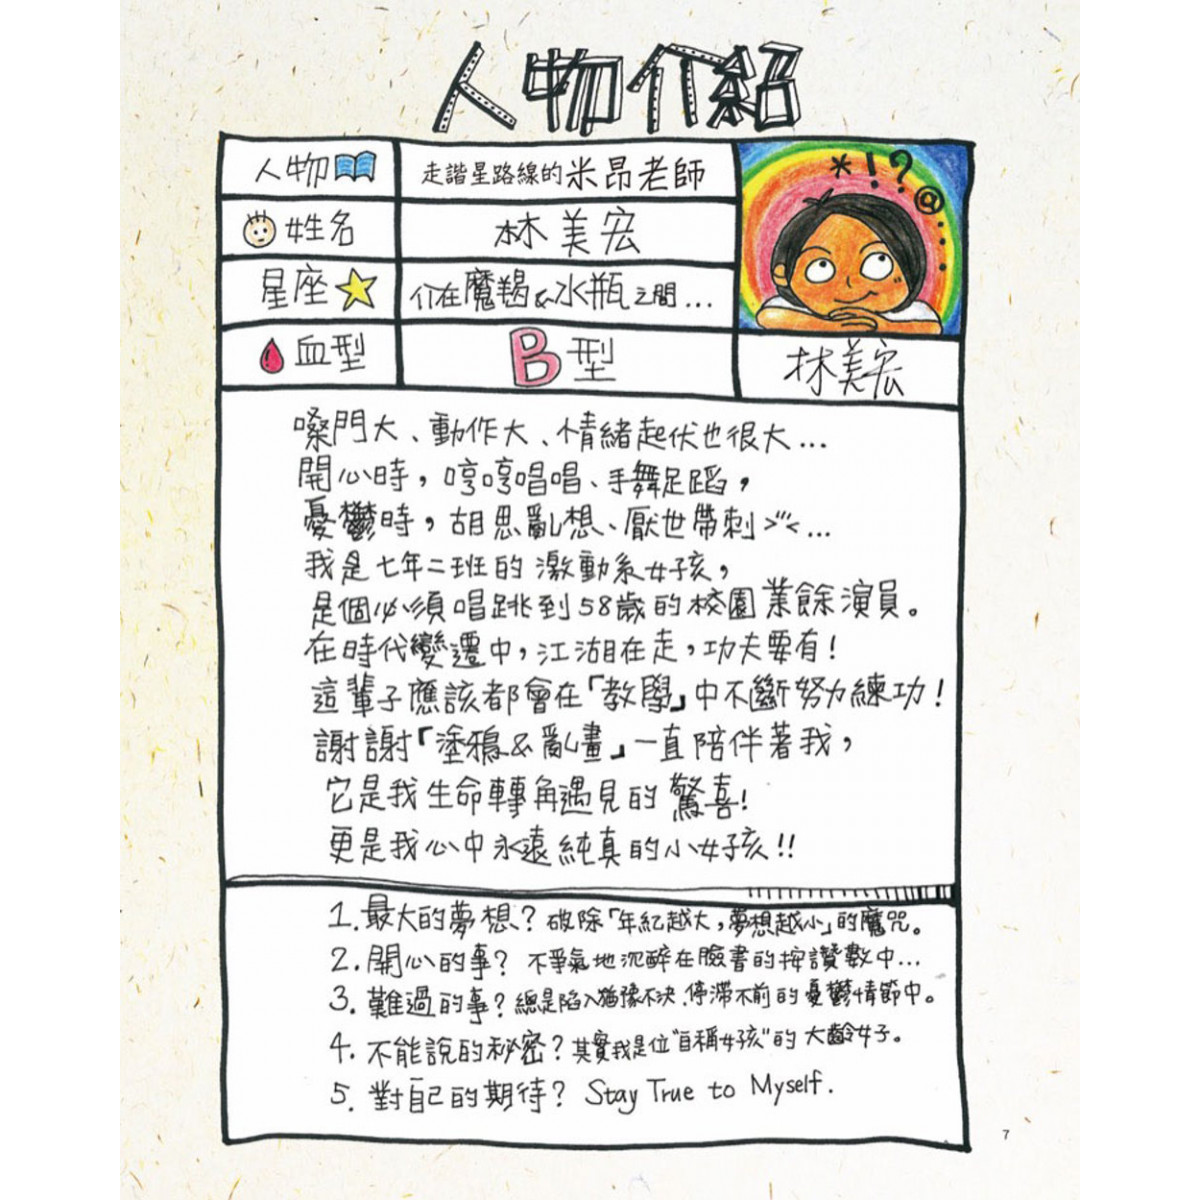 人物介紹
人物 走諧星路線的米昂老師
姓名 林美宏
星座 介在魔羯&水瓶之間...
血型 B型
*!?@....
林美宏
嗓門大、動作大、情緒起伏也很大...
開心時，哼哼唱唱、手舞足蹈，
憂鬱時，胡思亂想、厭世帶刺...
我是七年二班的激動系女孩，
是個必須唱跳到58歲的校園業餘演員。
在時代變遷中，江湖在走，功夫要有！
這輩子應該都會在「教學」中不斷努力練功！
謝謝「塗鴉&亂畫」一直陪伴著我，
它是我生命轉角遇見的驚喜！
更是我心中永遠純真的小女孩！！
1. 最大的夢想？破除「年紀越大，夢想越小」的魔咒。
2. 開心的事？不爭氣地沉醉在臉書的按讚數中...
3. 難過的事？總是陷入猶豫不決、停滯不前的憂鬱情節中。
4. 不能說的秘密？其實我是位"自稱女孩"的大齡女子。
5. 對自己的期待？Stay True to Myself.
7